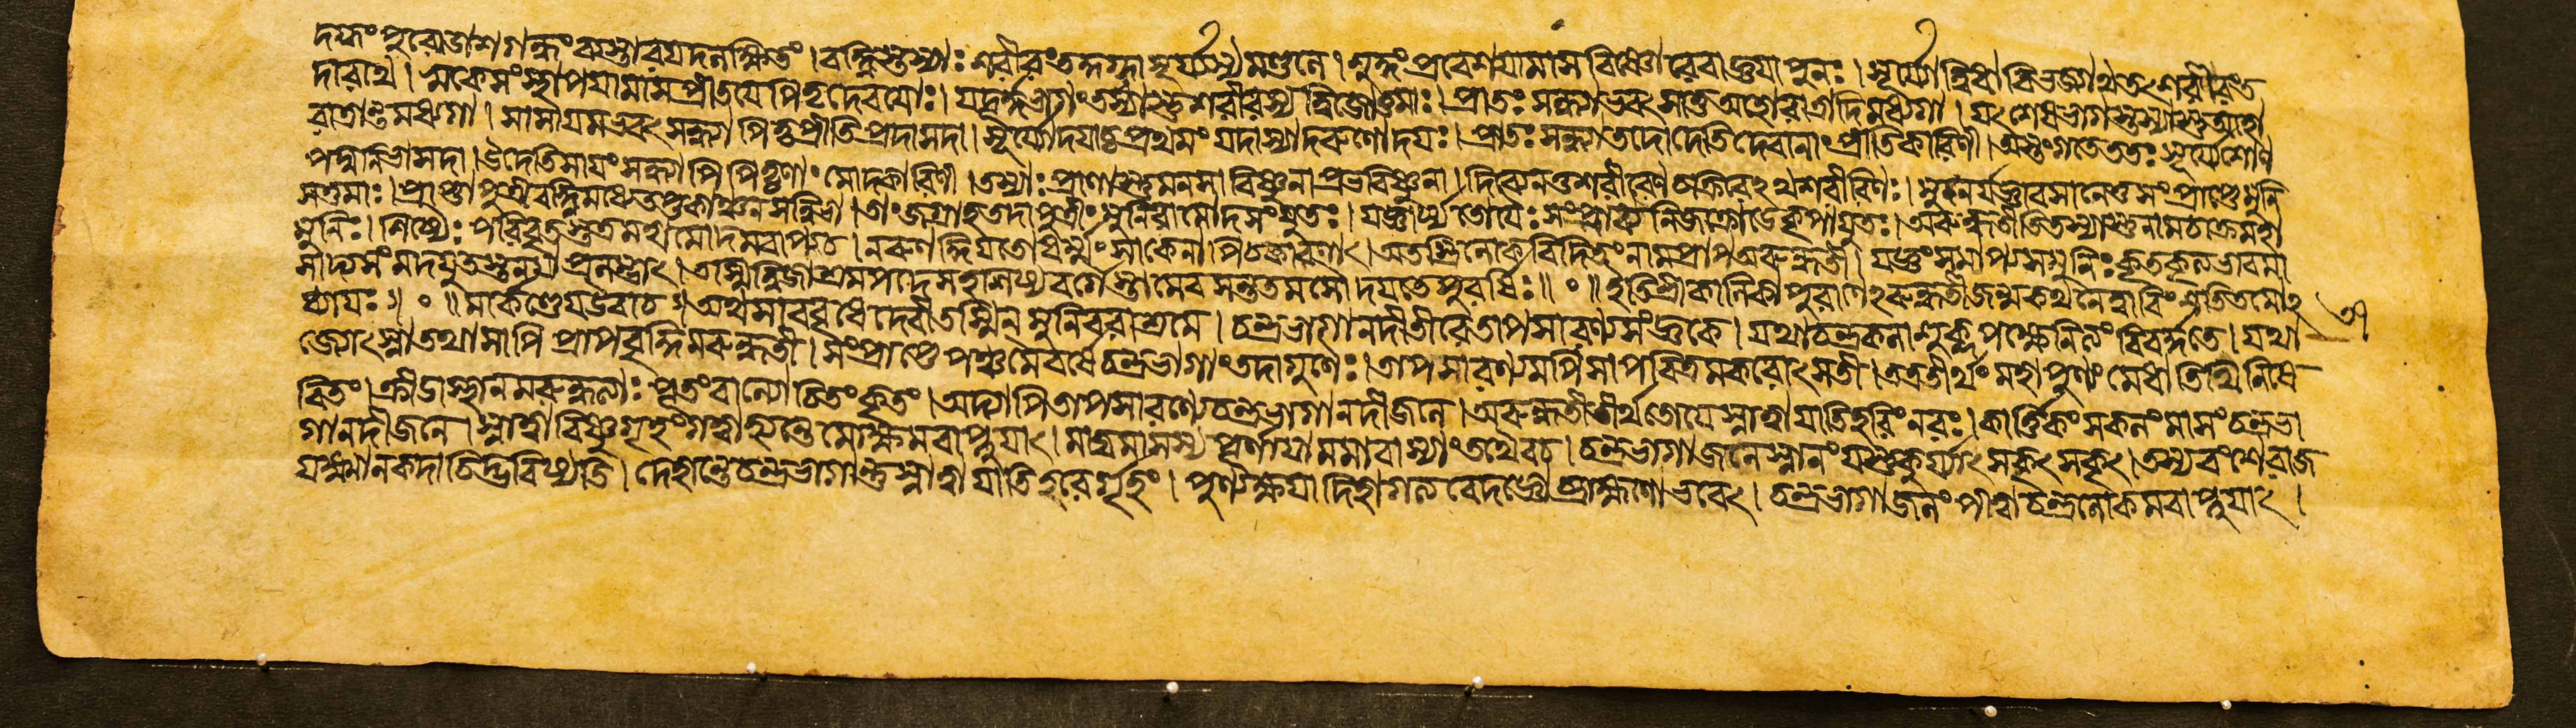 দগ্ধং পুরোডাশগন্ধং ব্যস্তারয়দলক্ষিতং । বহ্নিস্তস্যাঃ শরীরং তদ্দগ্ধা সূর্য্যস্য মণ্ডলে । শুদ্ধং প্রবেশয়ামাস বিষ্ণোরেবাজ্ঞয়া পুনঃ । সূর্য্যো দ্বিধা বিভজ্যাথ তৎ শরীরং ত
দা রথে । স্বকে সংস্থাপয়ামাস প্রীতয়ে পিতৃদেবয়োঃ । যদূর্দ্ধভাগং তস্যাস্তু শরীরস্য দ্বিজোত্তমাঃ । প্রাতঃসন্ধ্যাভবৎ সা তু অহোরাত্রাদিমধ্যগা । যৎ শেষভাগস্তস্যাস্তু অহো
রাত্রান্তমধ্যগা । সা সায়মভবৎ সন্ধ্যা পিতৃপ্রীতিপ্রদা সদা । সূর্য্যোদয়াচ্চ প্রথমং যদা স্যাদরুণোদয়ঃ । প্রাতঃসন্ধ্যা তদোদেতি দেবানাং প্রীতিকারিণী । অস্তং গতে ততঃ সূর্য্যে শোণ
পদ্মনিভা সদা । উদেতি সায়ং সন্ধ্যাপি পিতৄণাং মোদকারিণী । তস্যাঃ প্রাণাস্তু মনসা বিষ্ণুনা প্রভবিষ্ণুনা । দিব্যেন তু শরীরেণ চক্রিরেঽথ শরীরিণঃ । মুনের্যজ্ঞাবসানে তু সংপ্রাপ্তে মুনি
সত্তমাঃ । প্রাপ্তা পুত্রী বহ্নিমধ্যে তপ্তকাঞ্চনসন্নিভা । তাং জগ্রাহ তদা পুত্রীং মুনিরামোদসংযুতঃ । যজ্ঞার্থ তোয়ৈঃ সংস্নাপ্য নিজক্রোড়ে কৃপাযুতঃ । অরুন্ধতীতি তস্যাস্তু নাম চক্রে মহা
মুনিঃ । শিষ্যৈঃ পরিবৃতস্তত্র মহামোদমবাপ চ । ন রুণদ্ধি যতো ধর্ম্মং সা কেনাপি চ কারণাৎ । অতস্ত্রিলোকবিদিতং নাম প্রাপ অরুন্ধতী । যজ্ঞং সমাপ্য স মুনিঃ কৃতকৃত্যভাবমা
সাদ্য সংমদযুতস্তনয়াপ্রলম্ভাৎ । তস্মিন্নিজাশ্রমপদে সহ শিষ্যবর্গৈস্তামেব সন্ততমমোদয়তে সুরর্ষিঃ ॥ ০ ॥ ইতি শ্রীকালিকাপুরাণেঽরুন্ধতীজন্মকথনে দ্বাবিংশতিতমোঽ
ধ্যায়ঃ ॥ ০ ॥ মার্কণ্ডেয় উবাচ ॥ অথ সা ববৃধে দেবী তস্মিন্ মুনিবরাশ্রমে । চন্দ্রভাগানদীতীরে তাপসারণ্যসংজ্ঞকে । যথা চন্দ্রকলা শুক্লপক্ষে নিত্যং বিবর্দ্ধতে । যথা
জ্যোৎস্না তথা সাপি প্রাপ বৃদ্ধিমরুন্ধতী । সংপ্রাপ্তে পঞ্চমে বর্ষে চন্দ্রভাগাং তদা গুণৈঃ । তাপসারণ্যমপি সা পবিত্রমকরোৎ সতী । তত্র তীর্থং মহাপুণ্যং মেধাতিথিনিষে
বিতং । ক্রীড়াস্থানমরুন্ধত্যাঃ পূতং বাল্যোচিতং কৃতং । অদ্যাপি তাপসারণ্যে চন্দ্রভাগানদীজলে । অরুন্ধতীতীর্থতোয়ে স্নাত্বা যাতি হরিং নরঃ । কার্ত্তিকং সকলং মাসং চন্দ্রভা
গানদীজলে । স্নাত্বা বিষ্ণুগৃহং গত্বা হ্যন্তে মোক্ষমবাপ্নুয়াৎ । মাঘমাসস্য পূর্ণায়ামমাবাস্যাং তথৈব চ । চন্দ্রভাগাজলে স্নানং যস্তু কুর্য্যাৎ সকৃৎ সকৃৎ । তস্য বংশে রাজ
যক্ষ্মা ন কদাচিদ্ভবিষ্যতি । দেহান্তে চন্দ্রভাগাস্তু স্নাত্বা যাতি হরের্গৃহং । পুণ্যক্ষয়াদিহাগত্য বেদজ্ঞো ব্রাহ্মণো ভবেৎ । চন্দ্রভাগাজলং পীত্বা চন্দ্রলোকমবাপ্নুয়াৎ ।